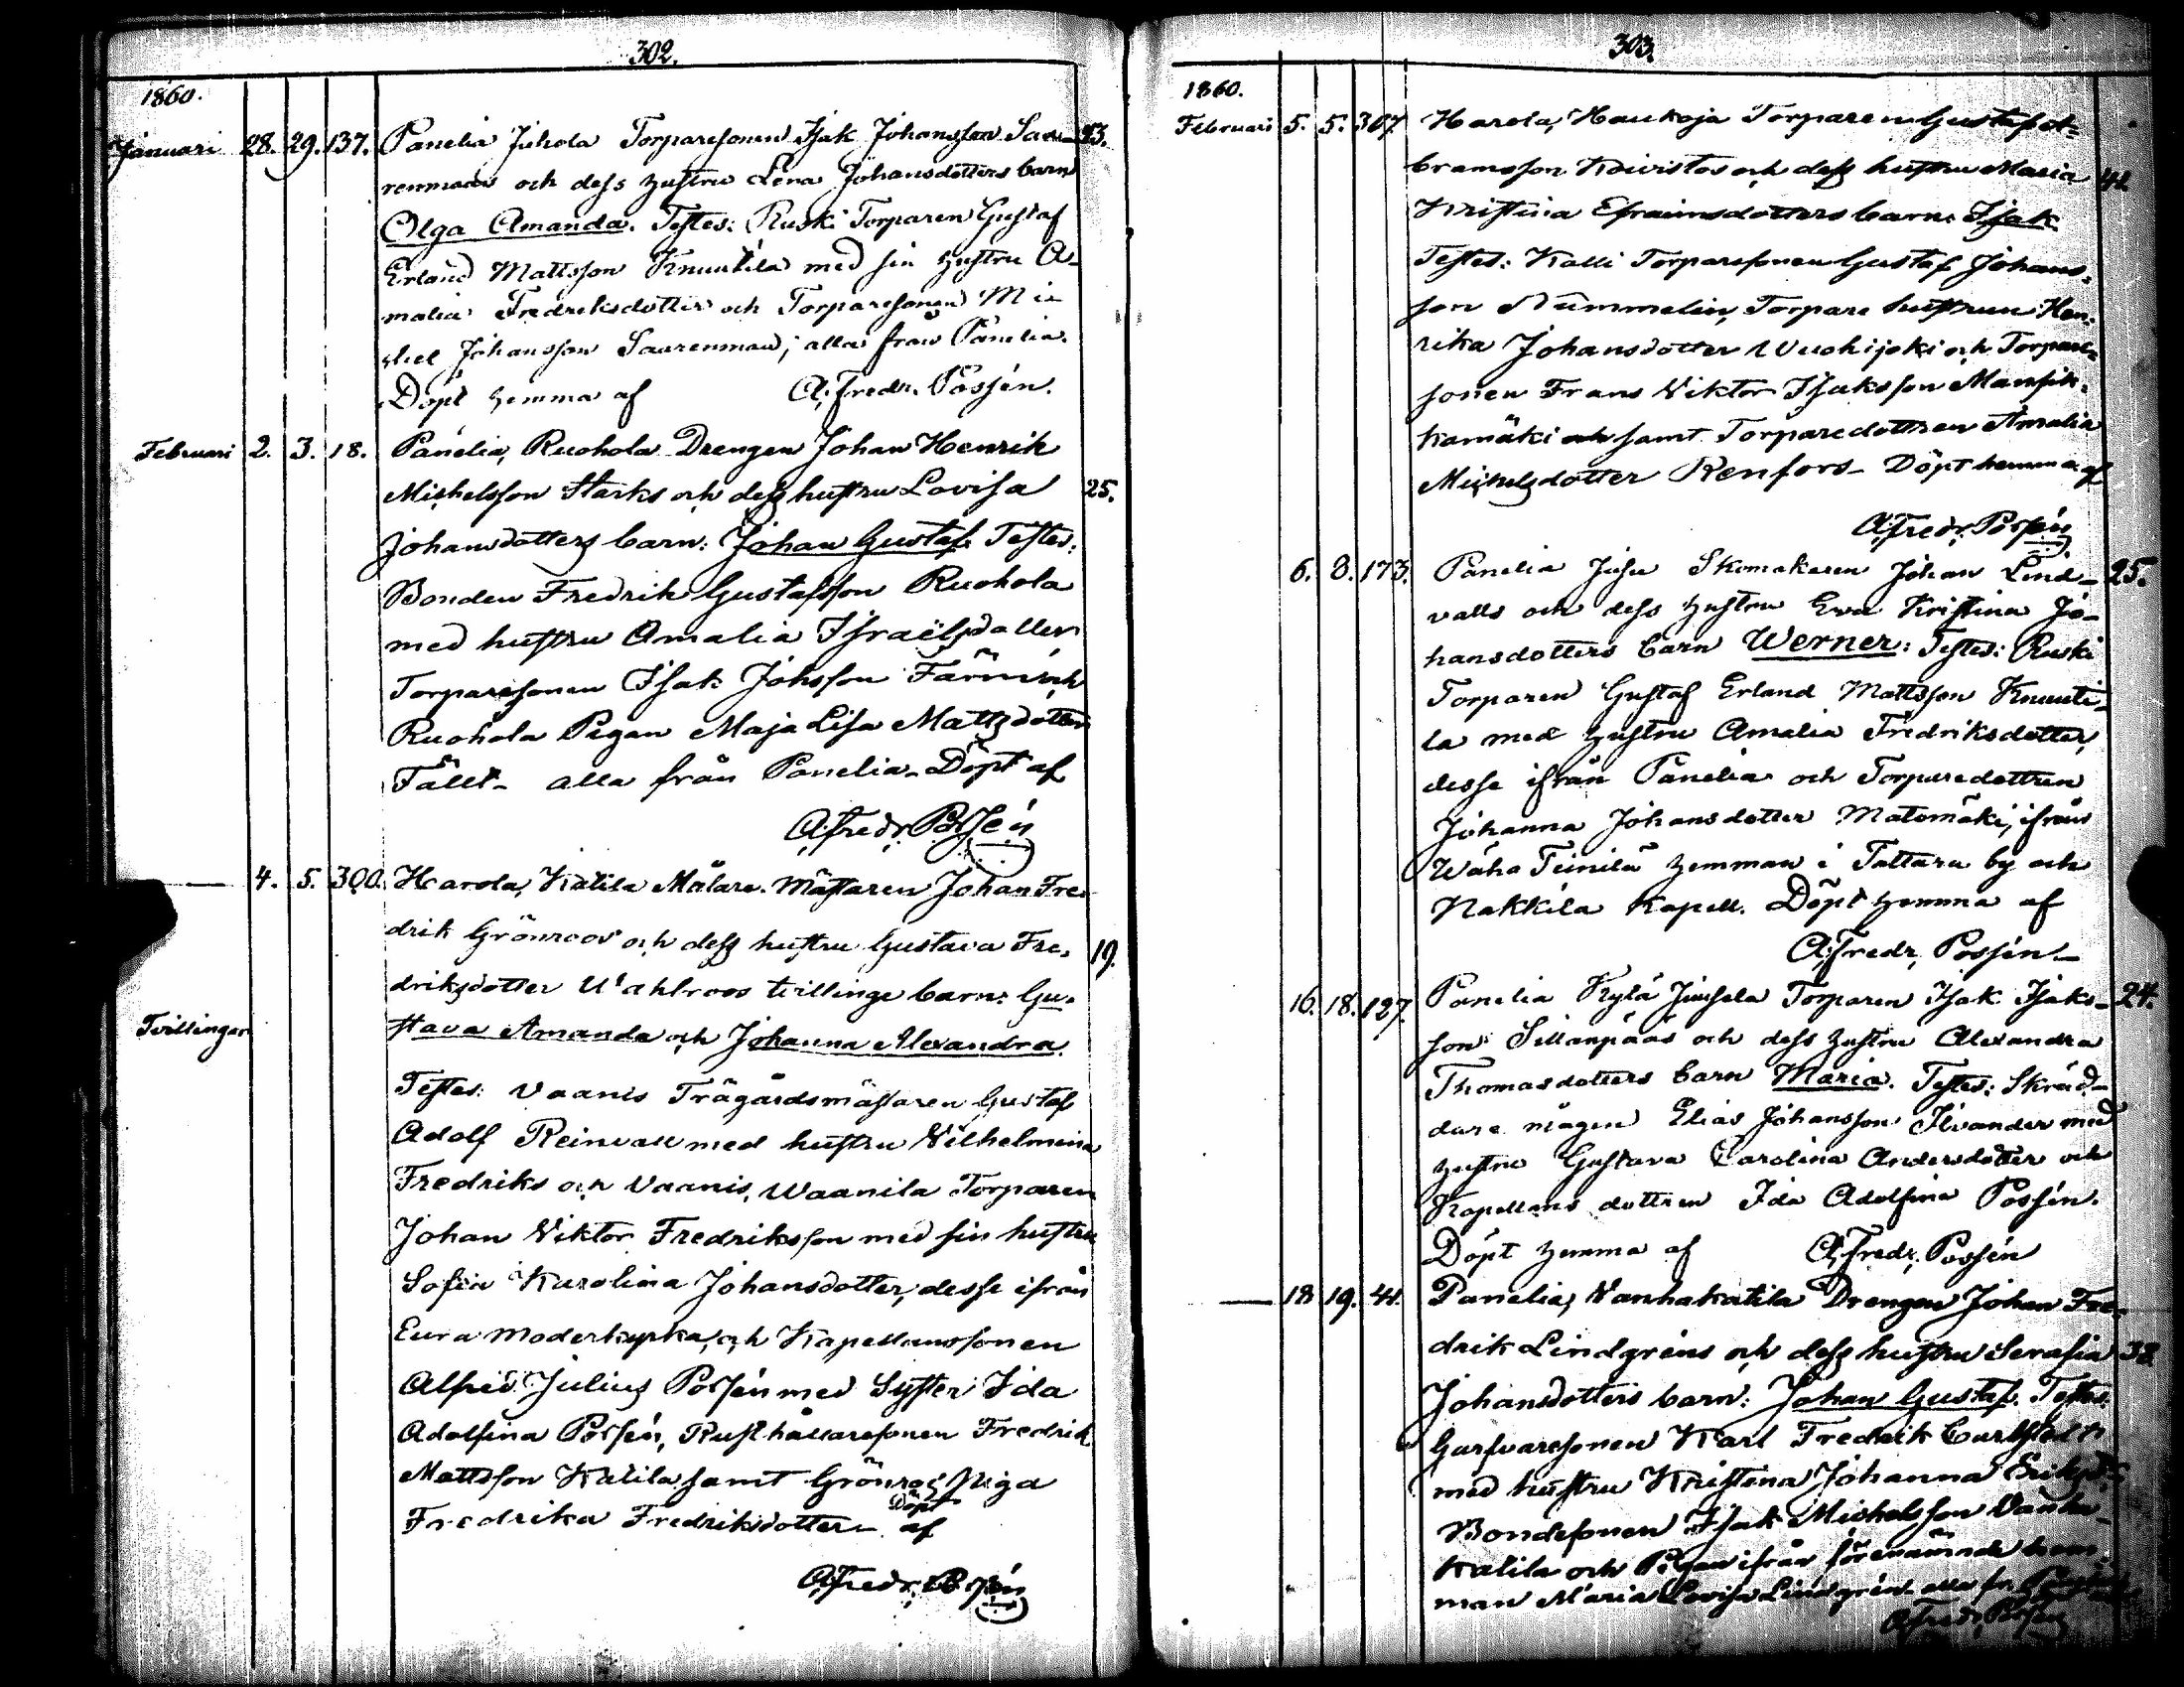 302.
1860.
Januari 28. 29. 137. Panelia Juhola Torparesonen Isak Johansson Sau- 23.
renmaas och dess hustru Lena Johansdotters barn
Olga Amanda. Testes: Ruski Torparen Gustaf
Erland Mattsson Knuutila med sin hustru A-
malia Fredriksdotter och Torparesonen Mi-
chel Johansson Saurenmaa; alla från Panelia.
Döpt hemma af A. Fredr. Possén.
Februari 2. 3. 18. Panelia, Ruohola Drengen Johan Henrik
Michelsson Starks och dess hustru Lovisa 25.
Johansdotters barn: Johan Gustaf. Testes:
Bonden Fredrik Gustafsson Ruohola
med hustru Amalia Israëlsdotter
Torparesonen Isak Johsson Färm och
Ruohola Pigan Maja Lisa Mattsdotter
Fällt- alla från Panelia- Döpt af
A. Fredr. Possén
— 4. 5. 300. Harola, Katila Målare-Mästaren Johan Fre-
drik Grönroos och dess hustru Gustava Fre- 19.
driksdotter Wahlroos tvillinge barn: Gu-
Tvillingar
stava Amanda och Johanna Alexandra.
Testes: Vaanis Trägårdsmästaren Gustaf
Adolf Reinvall med hustru Wilhelmina
Fredriks och Vaanis, Waanila Torparen
Johan Viktor Fredriksson med sin hustru
Sofia Karolina Johansdotter, desse ifrån
Eura Moderkyrka, och Kapellanssonen
Alfred Julius Possén med Syster Ida
Adolfina Possén, Rusthållaresonen Fredrik
Mattsson Katila samt Grönroos Piga
Fredrika Fredriksdotter- Döpt af
A. Fredr. Possén
303.
1860.
Februari 5. 5. 307. Harola, Haukoja Torparen Gustaf A-
bramsson Koivistos och dess hustru Maria 41
Kristina Efraimsdotters barn: Isak
Testes: Kalli Torparesonen Gustaf Johans-
son Nummelin, Torpare hustrun Hen-
rika Johansdotter Wuohijoki och Torpare-
sonen Frans Viktor Isaksson Mansik-
kamäki samt Torparedottren Amalia
Michelsdotter Renfors- Döpt hemma af
A. Fredr. Possén
6. 8. 173. Panelia Jusu Skomakaren Johan Lind- 25.
valls och dess hustru Eva Kristina Jo-
hansdotters barn Werner: Testes: Ruski
Torparen Gustaf Erland Mattsson Knuuti-
la med hustru Amalia Fredriksdotter,
desse ifrån Panelia och Torparedottren
Johanna Johansdotter Matomäki, ifrån
Wäha Teinilä hemman i Tattara by och
Nakkila Kapell. Döpt hemma af
A. Fredr. Possén-
16. 18. 127. Panelia Kylä Juusela Torparen Isak Isaks- 24.
son Sillanpääs och dess hustru Alexandra
Thomasdotters barn Maria. Testes: Skräd-
dare mågen Elias Johansson Ilvander med
hustru Gustava Carolina Andersdotter och
Kapellans dottren Ida Adolfina Possén.
Döpt hemma af A. Fredr. Possén
— 18 19. 41. Panelia, Vanhakatila Drengen Johan Fre-
drik Lindgréns och dess hustru Serafia 38
Johansdotters barn: Johan Gustaf. Testes:
Garfvaresonen Karl Fredrik Carlstedt
med hustru Kristina Johanna Eriksd:
Bondesonen Isak Michelsson Vanha-
katila och Pigan ifrån förenämnde hem-
man Maria Lovisa Lindgrén- alla fr. Panelia
A. Fredr. Possén